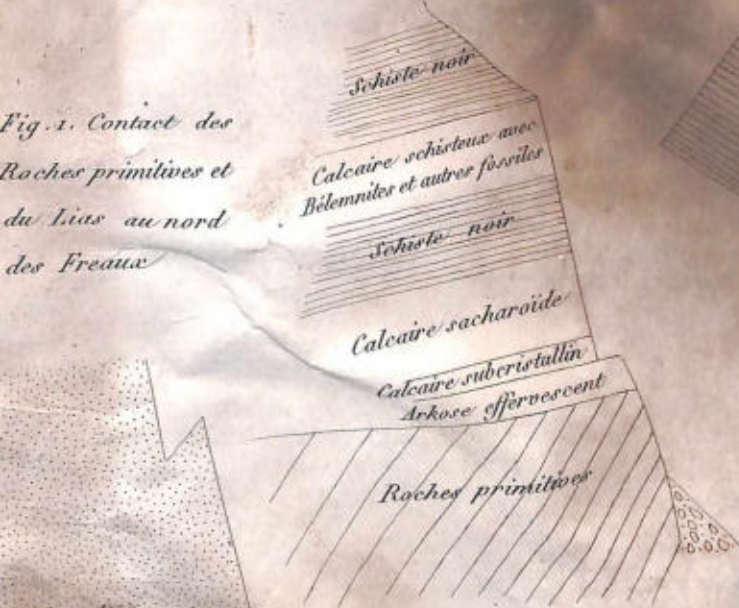 Fig. 1. Contact des
Roches primitives et
du Lias au nord
des Freaux
Schiste noir
Calcaire schisteux avec
Bélemnites et autres fossiles
Schiste noir
Calcaire sacharoïde
Calcaire subcristallin
Arkose effervescent
Roches primitives